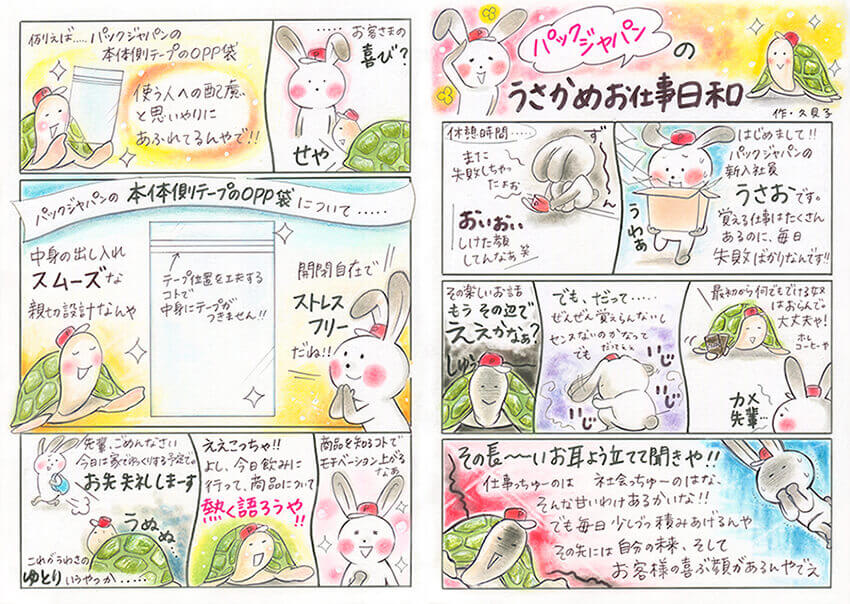 パックジャパン
の
うさかめお仕事日和
作・久見子
はじめまして!!
パックジャパンの
新入社員
うさおです。
覚える仕事はたくさん
あるのに、毎日
失敗ばかりなんです!!
うわぁ
休憩時間‥‥
また
失敗しちゃった
よぉぉ
ず〜ん
おいおい
しけた顔
してんなぁ 笑
最初から何でもできる奴
はおらんで。
大丈夫や!
ホレ
コーヒーや
カメ
先輩…
でも、だって‥‥
ぜんぜん覚えらんないし
センスないのかなって
でも
だって
いじ
いじ
その楽しいお話
もう その辺で
ええかなぁ?
しゅぅ
その長〜〜いお耳よう立てて聞きや!!
仕事っちゅーのは 社会っちゅーのはな、
そんな甘いわけあるかいな!!
でも毎日 少しづつ積みあげるんや
その先には 自分の未来、そして
お客様の喜ぶ顔があるんやでぇ
お客さまの
喜び?
せや
例えば‥‥パックジャパンの
本体側テープのOPP袋
使う人への配慮
と思いやりに
あふれてるんやで!!
パックジャパンの 本体側テープのOPP袋 について‥‥‥
中身の出し入れ
スムーズな
親切設計なんや
テープ位置を工夫する
コトで
中身にテープが
つきません!!
開閉自在で
ストレス
フリー
だね!!
商品を知るコトで
モチベーション上がる
なぁ
ええこっちゃ!!
よし、今日飲みに
行って、商品について
熱く語ろうや!!
先輩、ごめんなさい
今日は家でゆっくりする予定で。
お先 失礼しまーす
うぬぬ…
これがうわさの
ゆとりいうやつか‥‥‥